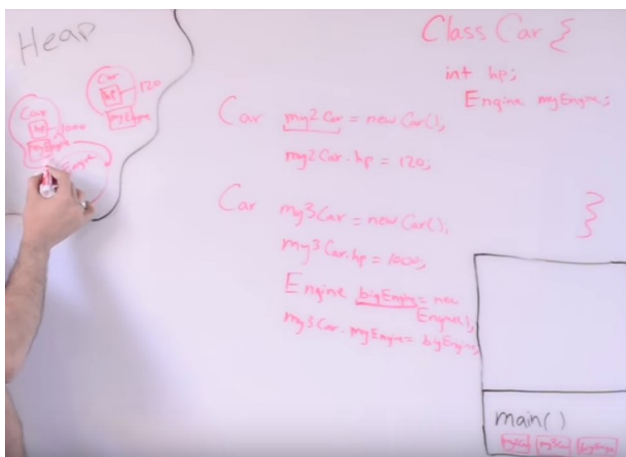 Heap
Car
hp
120
myEngine
Car
hp
1000
myEngine
Class Car {
int hp;
Engine myEngine;
}
Car my2Car = new Car();
my2Car.hp = 120;
Car my3Car = new Car();
my3Car.hp = 1000;
Engine bigEngine = new
Engine();
my3Car.myEngine = bigEngine;
main()
my2Car my3Car bigEngine